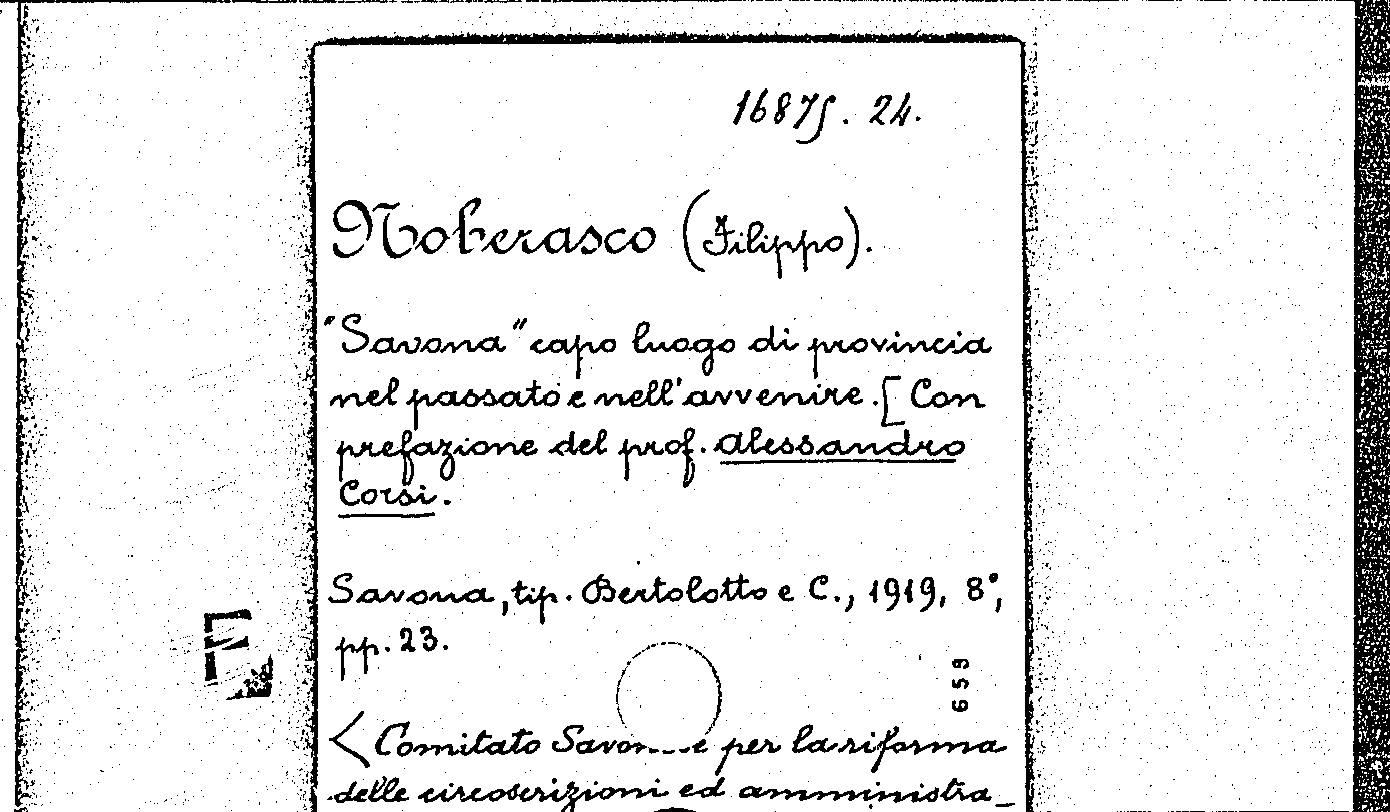 1687ʃ. 24.
Noberasco (Filippo).
"Savona" capo luogo di provincia
nel passato e nell'avvenire. [Con
prefazione del prof. Alessandro
Corsi.
Savona, tip. Bertolotto e C., 1919, 8°,
pp. 23.
659
<Comitato per la riforma
delle circoscrizioni ed amministra_